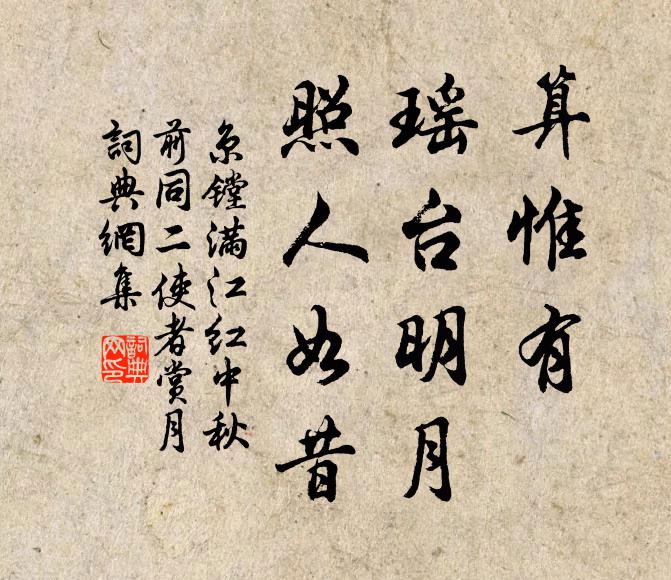 算惟有
瑶台明月
照人如昔
京鏜满江红中秋
前同二使者賞月
詞典網集
詞典网印